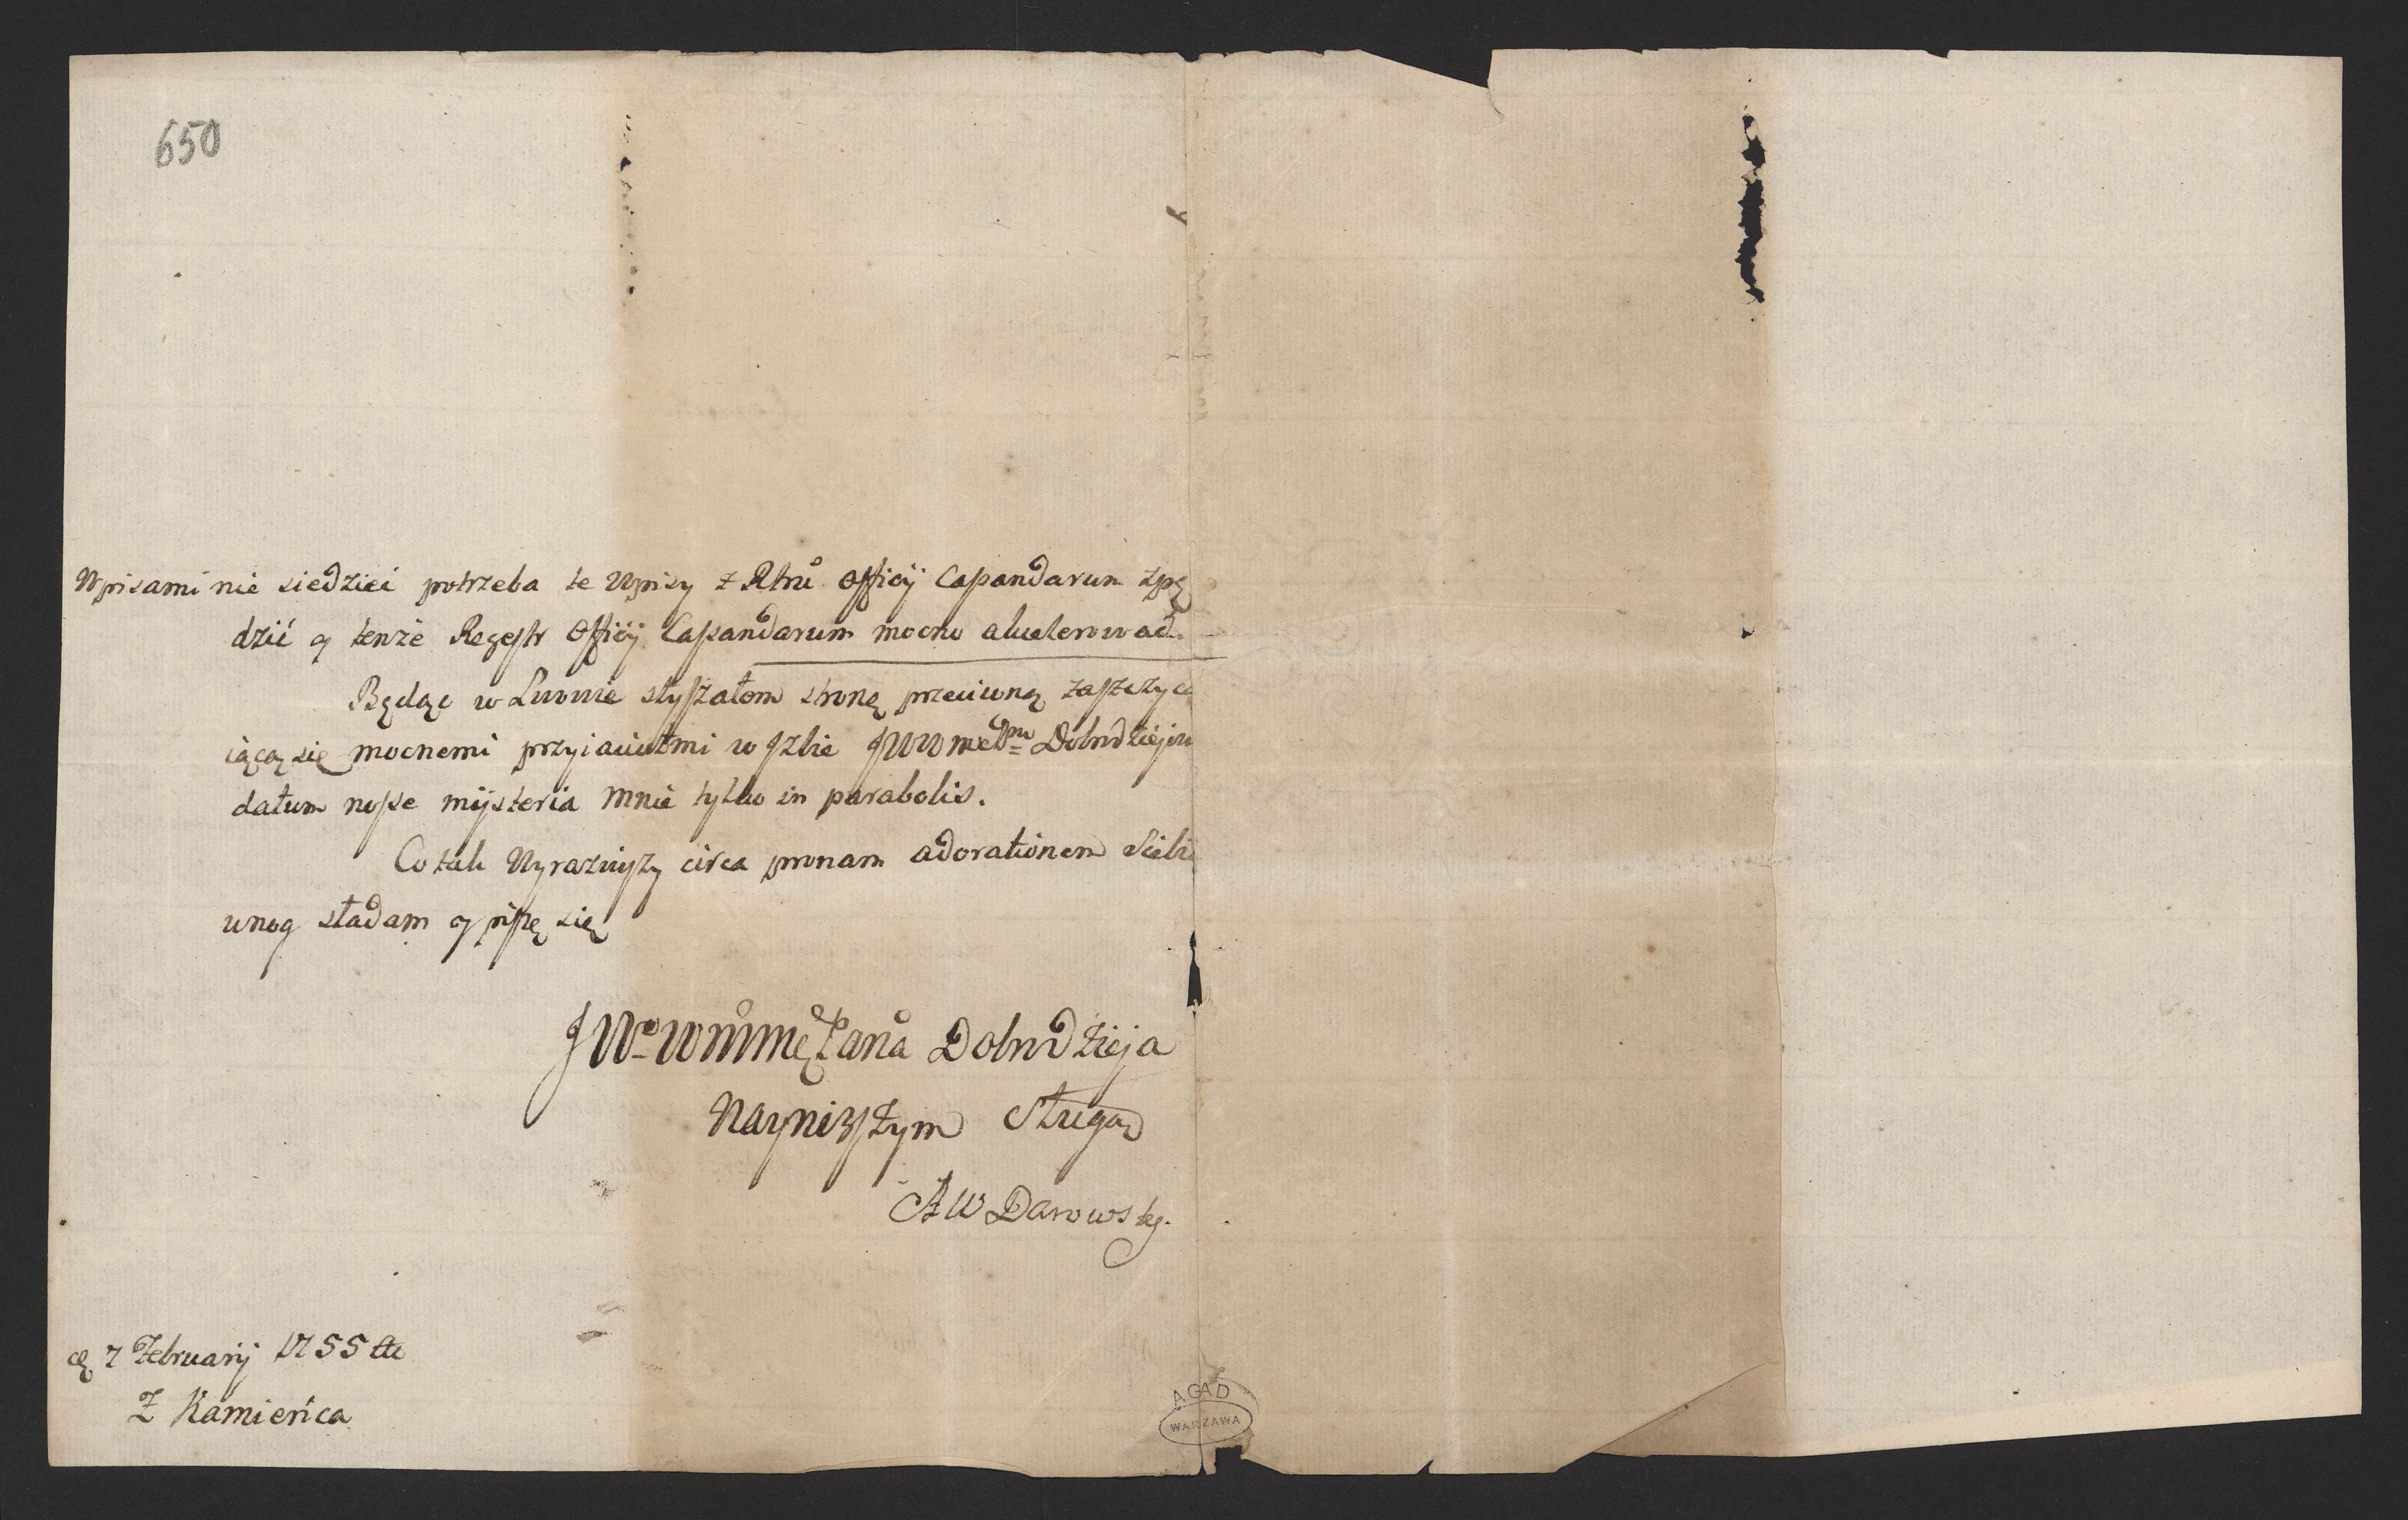 650
Wpisami nie siedzieć potrzeba te Wpisy z Rtru Officÿ Capandarum zpę
dzić y tenże Regestr Officÿ Capandarum mocno
Będąc w Lwowie słyszałem stronę przeciwną zaszczyca
iącą się mocnemi przyiaciołmi w Jzbie JWWmePnu Dobrodziejow
datum nosse mÿsteria mnie tylko in parabolis.
Co tak Wyraziwszy circa pronam adorationem Sciele
unog sładam y piszę się
JWo WMMę Pana Dobrodzieja
Nayniższym Sługą
AW Darowsky.
7 Februarÿ 1755
Z Kamieńca
AGAD
WARZAWA